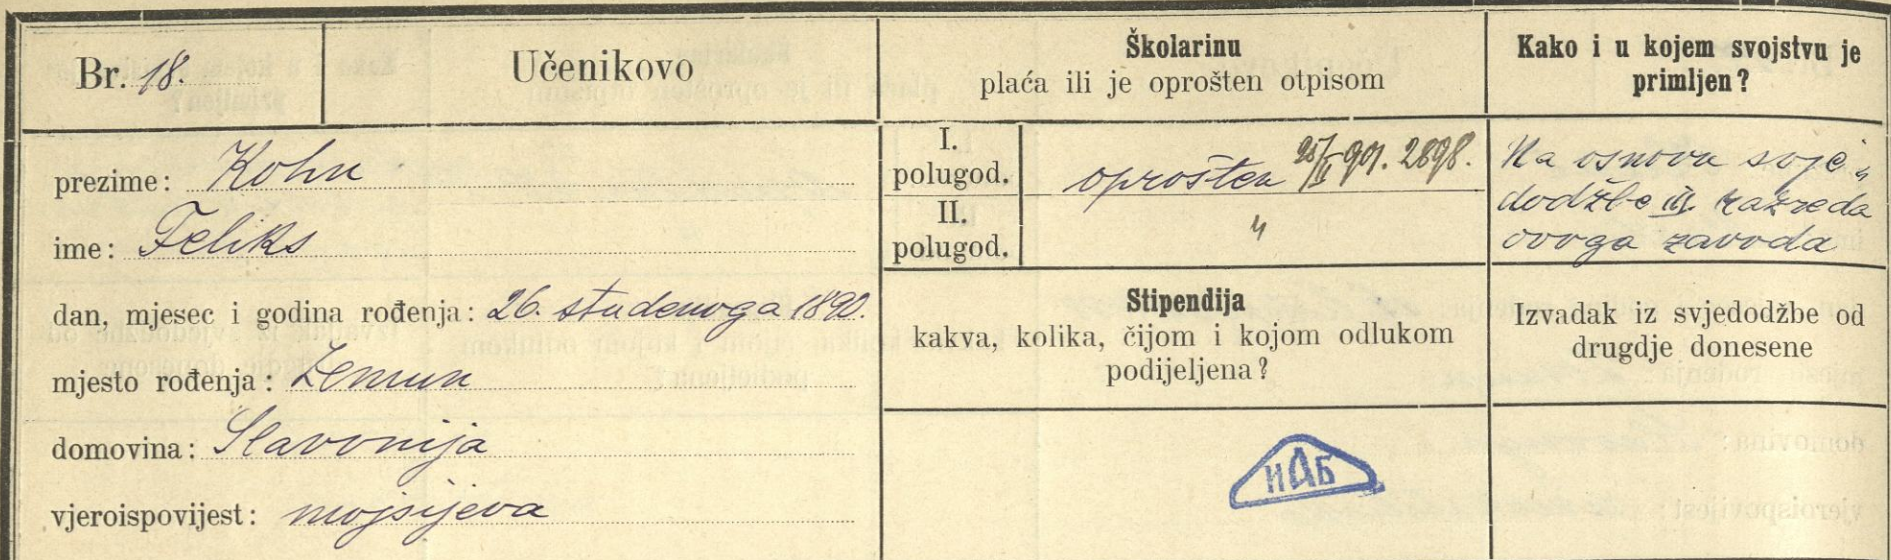 Br. 18.
Učenikovo
prezime: Kohn
ime: Feliks
dan, mjesec i godina rođenja: 26. studenoga 1890.
mjesto rođenja: Zemun
domovina: Slavonija
vjeroispovijest: mojsijeva
Školarinu
plaća ili je oprošten otpisom
I.
polugod.
oprošten 901. 2898.
II.
polugod.
"
Stipendija
kakva, kolika, čijom i kojom odlukom
podijeljena?
ИАБ
Kako i u kojem svojstvu je
primljen?
Na osnovu svje-
dodžbe III. razreda
ovoga zavoda
Izvadak iz svjedodžbe od
drugdje donesene